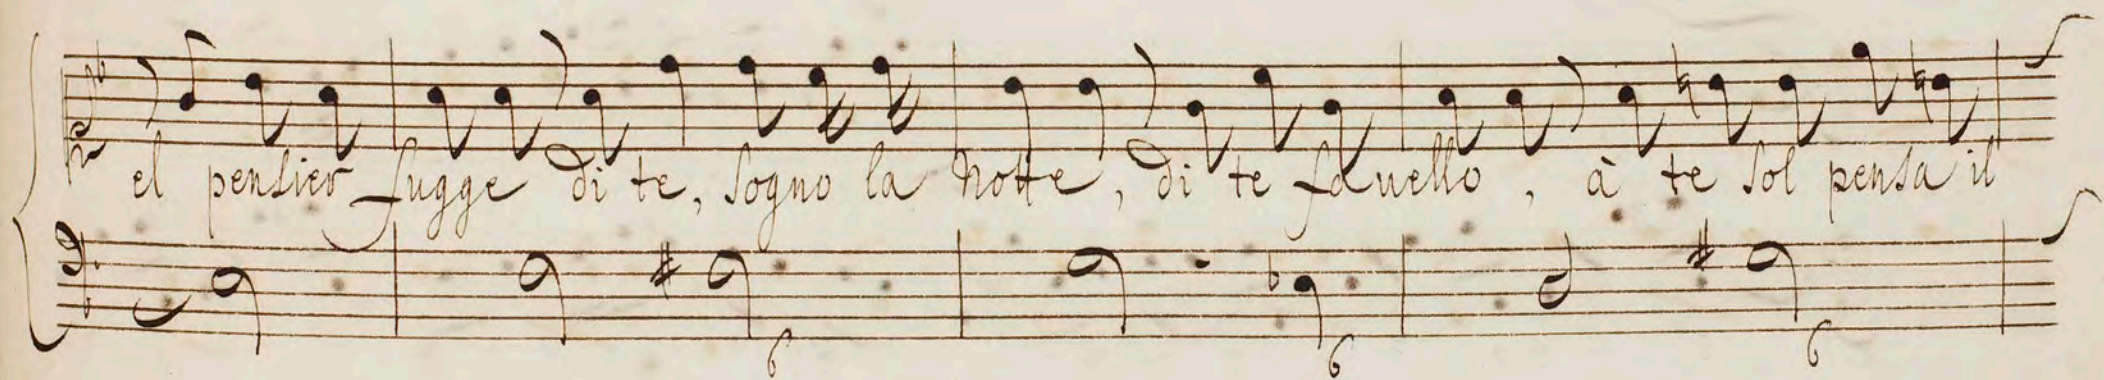 el pensier fugge di te, sogno la notte, di te fauello, à te sol pensa il
6 6 6